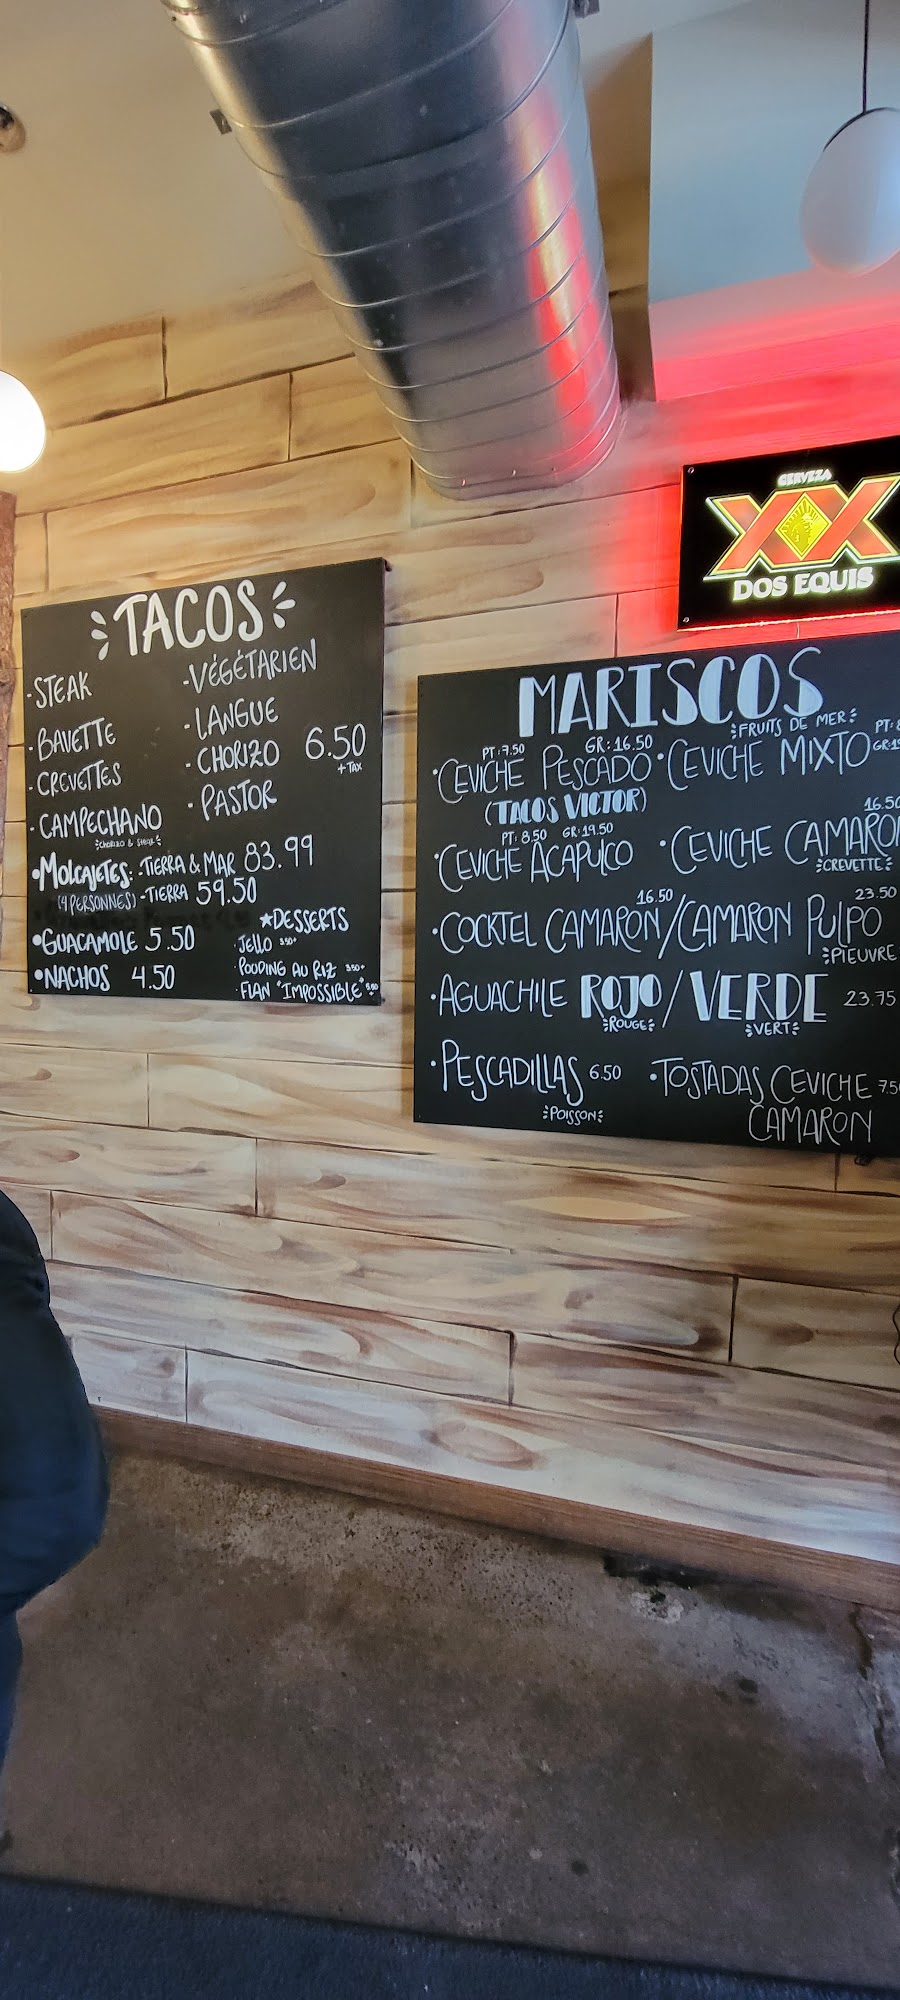 TACOS
-STEAK
-BAVETTE
-CREVETTES
-CAMPECHANO
CHORIZO & STEAK
-VÉGÉTARIEN
-LANGUE
-CHORIZO
-PASTOR
6.50
+TAX
•MOLCAJETES: -TIERRA & MAR 83.99
(4 PERSONNES) -TIERRA 59.50
•GUACAMOLE 5.50
•NACHOS 4.50
★DESSERTS
·JELLO 3.50+
·POUDING AU RIZ 3.50+
·FLAN "IMPOSSIBLE"
CERVEZA
XX
DOS EQUIS
MARISCOS
FRUITS DE MER
PT:7.50 GR:16.50
•CEVICHE PESCADO
(TACOS VICTOR)
PT:
•CEVICHE MIXTO
PT:8.50 GR:19.50
•CEVICHE ACAPULCO
16.50
•CEVICHE CAMARON
CREVETTE
16.50 23.50
•COCKTEL CAMARON/CAMARON PULPO
PIEUVRE
•AGUACHILE ROJO/VERDE 23.75
ROUGE VERT
•PESCADILLAS 6.50
POISSON
•TOSTADAS CEVICHE 7.50
CAMARON